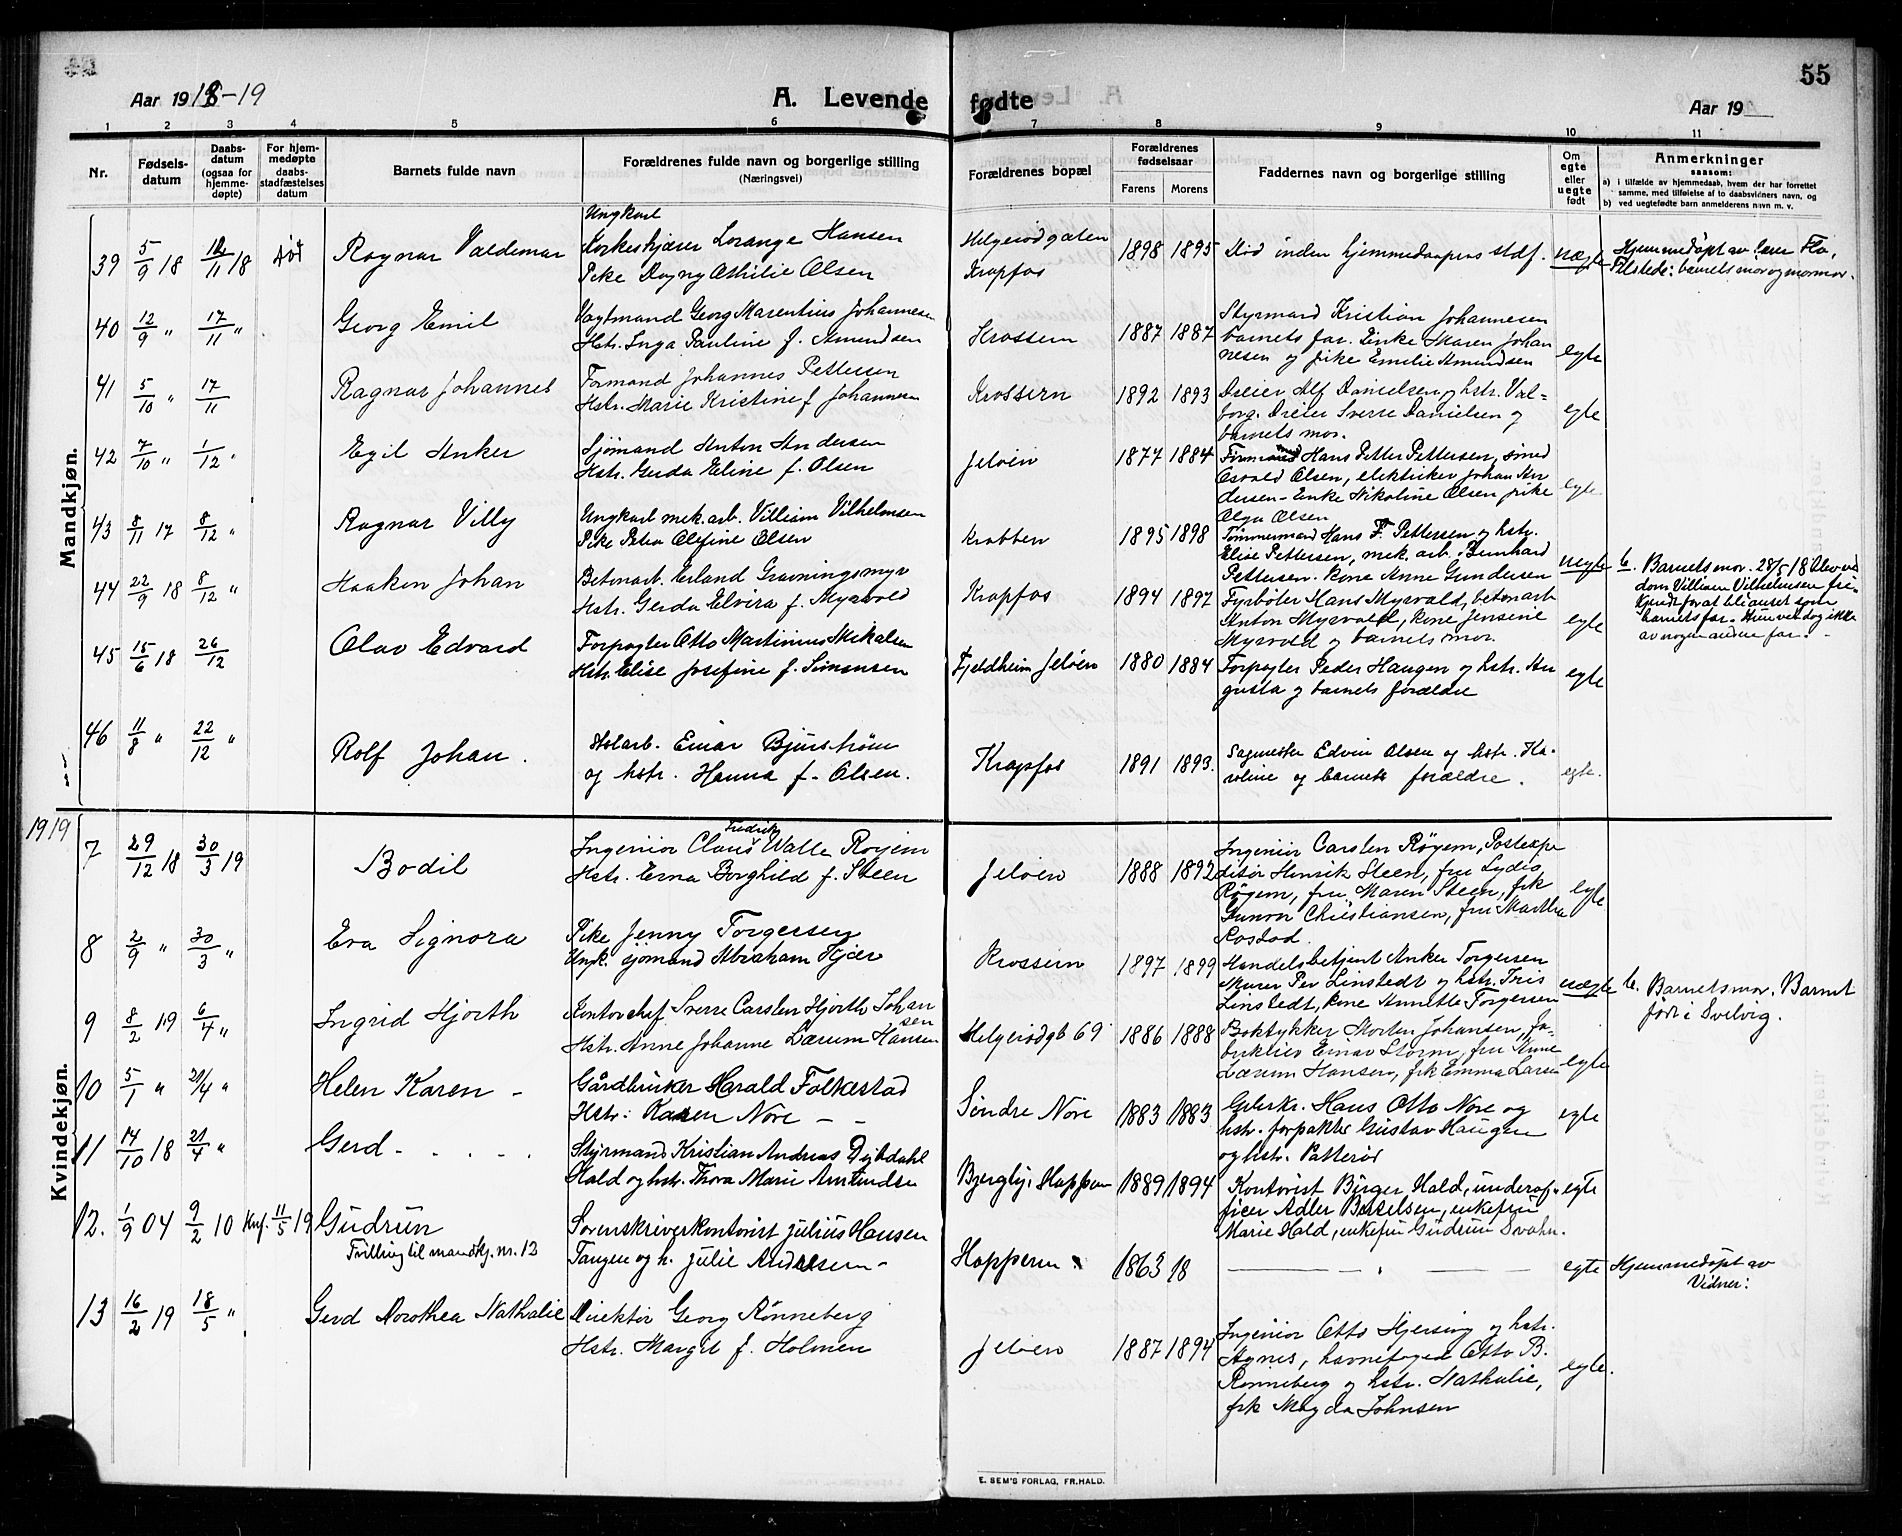 55
Aar 1918-19
A. Levende fødte
Aar 19
1 2 3 4 5 6 7 8 9 10 11
Nr.
Fødsels-
datum
Daabs-
datum
(ogsaa for
hjemme-
døpte)
For hjem-
medøpte
daabs-
stadfæstelses
datum
Barnets fulde navn
Forældrenes fulde navn og borgerlige stilling
(Næringsvei)
Forældrenes bopæl
Forældrenes
fødselsaar
Farens Morens
Faddernes navn og borgerlige stilling
Om
egte
eller
uegte
født
Anmerkninger
saasom:
a) i tilfælde av hjemmedaab, hvem der har forrettet
samme, med tilføielse af to daabsvidners navn, og
b) ved uegtefødte barn anmelderens navn m. v.
Mandkjøn.
39 5/9 18 /11 18 død Ragnar Valdemar
Ungkarl
Lorange Hansen
Pike Dagny Othilie Olsen
Helgerødgaten
Krapfos
1898 1895
Død inden hjemmedaapens stdf.
uegte
Hjemmedøpt av
Tilstede: barnets mor og mormor.
40 12/9 " 17/11 " Georg Emil
Vagtmand Georg Marentius Johannesen
Hstr. Inga Pauline f. Amundsen
Krossern
1887 1887
Styrmand Kristian Johannesen
barnets far. Enke Maren Johan
nesen og pike Emilie Amundsen
egte
41 5/10 " 17/11 Ragnar Johannes
Formand Johannes Pettersen
Hstr. Marie Kristine f Johannesen
Krossern
1892 1893
Dreier Alf Danielsen og hstr. Val-
borg. Dreier Sverre Danielsen og
barnets mor.
egte
42 7/10 " 1/12 " Egil Anker
Sjømand Anton Andersen
Hstr. Gerda Eline f. Olsen
Jeløen
1877 1884
Hans Petter Pettersen, smed
Osvald Olsen, elektriker Johan An
dersen - Enke Nikoline Olsen pike
Olga Olsen
egte
43 8/11 17 8/12 " Ragnar Villy
Ungkarl mek. arb. Villiam Vilhelmsen
Pike Petra Olefine Olsen
Krabben
1895 1898
Tømmermand Hans F. Pettersen og hstr.
Elise Pettersen, mek. arb. Bernhard
Pettersen. kone Anne Gundersen
uegte
b. Barnets mor. 28/5 18
dom Villiam Vilhelmsen fri-
kjendt for at bli anset som
barnets far. Hun ved dog ikke
av nogen anden far.
44 22/9 18 8/12 " Haakon Johan
Betonarb. Erland Gravningsmyr
Hstr. Gerda Elvira f. Myrvold
Krapfos
1894 1897
Fyrbøter Hans Myrvold, betonarb
Anton Myrvold, kone Jensine
Myrvold og barnets mor.
egte
45 15/6 18 26/12 Olav Edvard
Forpagter Otto Martinius Mikalsen
Hstr. Elise Josefine f. Simensen
Fjeldheim Jeløen
1880 1884
Forpagter Peder Haugen og hstr. Au
gusta og barnets forældre
egte
46 11/8 " 22/12 " Rolf Johan.
Einar Bjurstrøm
og hstr. Hanna f. Olsen.
Krapfos
1891 1893.
Sagmester Edvin Olsen og hstr. Ka-
roline og barnets forældre.
egte.
1919
Kvindekjøn.
7 29/12 18 30/3 19 Bodil
Fredrik
Ingeniør Claus Valle Røyem
Hstr. Erna Borghild f. Steen
Jeløen
1888 1892
Ingeniør Carsten Røyem, Postexpe
ditør Henrik Steen, fru Lydia
Røyem, fru Maren Steen, frk
Gunvor Christiansen, fru Martha
Rostad.
egte
8 2/9 " 30/3 " Eva Signora
Pike Jenny Torgersen
Ungk. sjømand Abraham Hjær
Krossern
1897 1899
Handelsbetjent Anker Torgersen
Murer Per Linstedt og hstr. Iris
Linstedt, kone Annette Torgersen
uegte
b. Barnets mor. Barnet
født i Svelvig.
9 8/2 19 6/4 " Ingrid Hjorth
Kontorchef Sverre Carsten Hjorth Johan
sen
Hstr. Anne Johanne Lærum Hansen
Helgerødgt 69
1886 1888
Boktrykker Morten Johansen, fa-
brikeier Einar Storm, fru Anne
Lærum Hansen, frk Emma Larsen
egte
10 5/1 " 21/4 " Helen Karen -
Gårdbruker Harald Folkestad
Hstr: Karen Nore - -
Søndre Nore
1883 1883
Gbrkr. Hans Otto Nore og
hstr. forpakter Gustav Haugen
og hstr. Patterød
egte
11 14/10 18 21/4 " Gerd - . . . .
Styrmand Kristian Andreas Dybdahl
Hald og hstr. Thora Marie Amundsen
Bjergly, Hoppern
1889 1894
Kontorist Birger Hald, underof-
ficer Adler Bertelsen, enkefru
Marie Hald, enkefru Gudrun Svahn.
egte
12. 1/9 04 9/2 10 Knf. 11/5 19 Gudrun
Tvilling til mandkj. nr. 13
Sorenskriverkontorist Julius Hansen
Tangen og h. Julie Andersen -
Hoppern
1863 18
egte
Hjemmedøpt av
Vidner:
13 16/2 19 18/5 " Gerd Dorothea Nathalie
Direktør Georg Rønneberg
Hstr. Margit f. Holmen
Jeløen
1887 1894
Ingeniør Otto Hjersing og hstr.
Agnes, havnefoged Otto B.
Rønneberg og hstr. Nathalie,
frk Magda Johnsen
egte.
E. SEM'S FORLAG, FR.HALD.